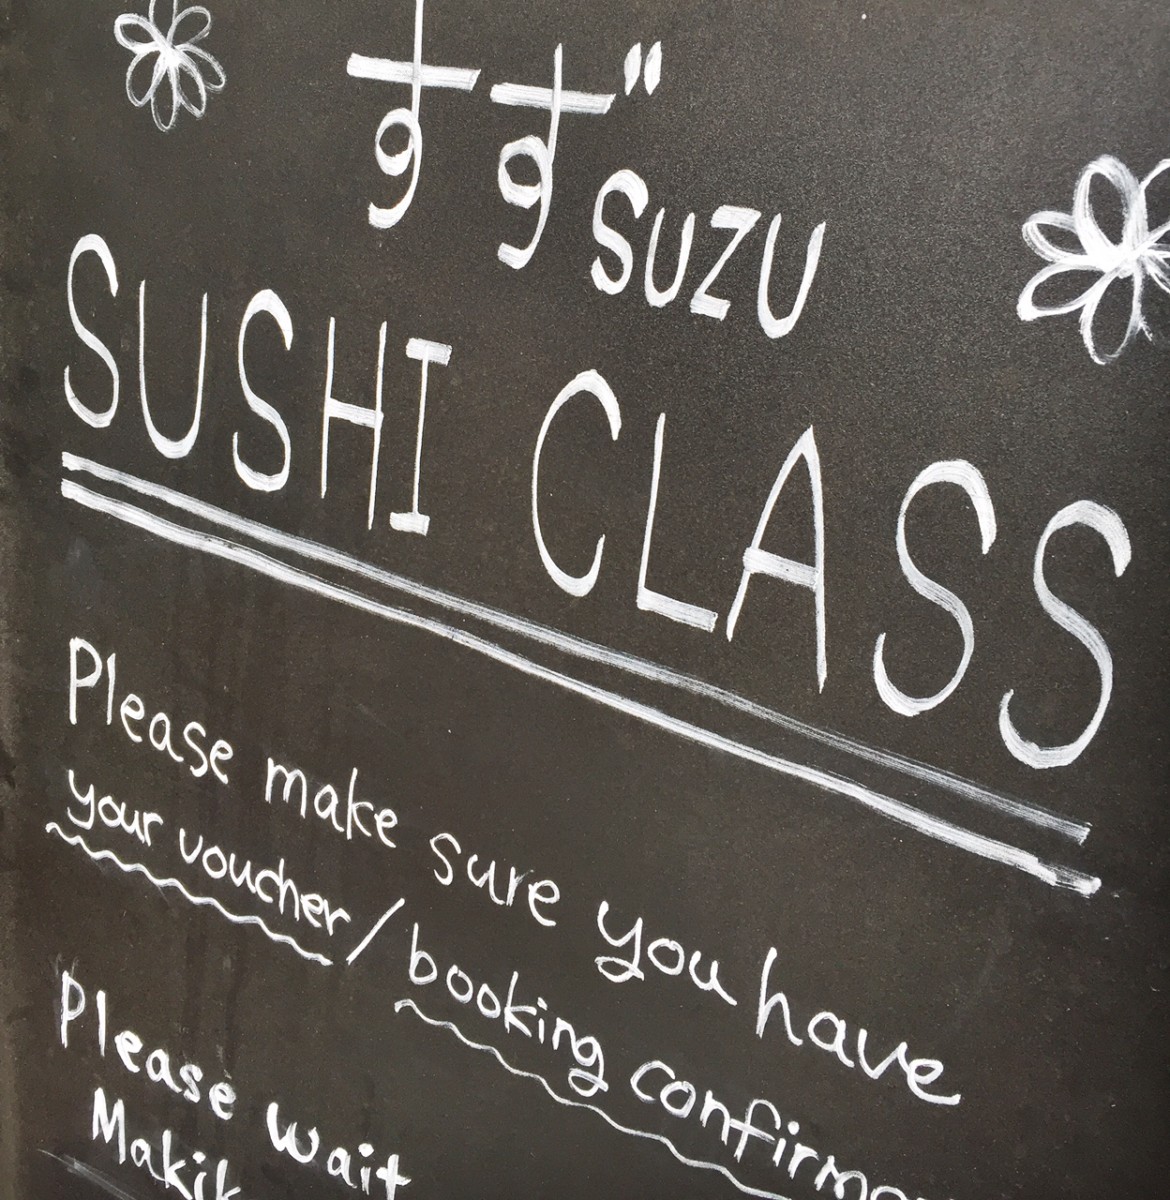 すず SUZU
SUSHI CLASS
Please make sure you have
your voucher / booking
Please wait